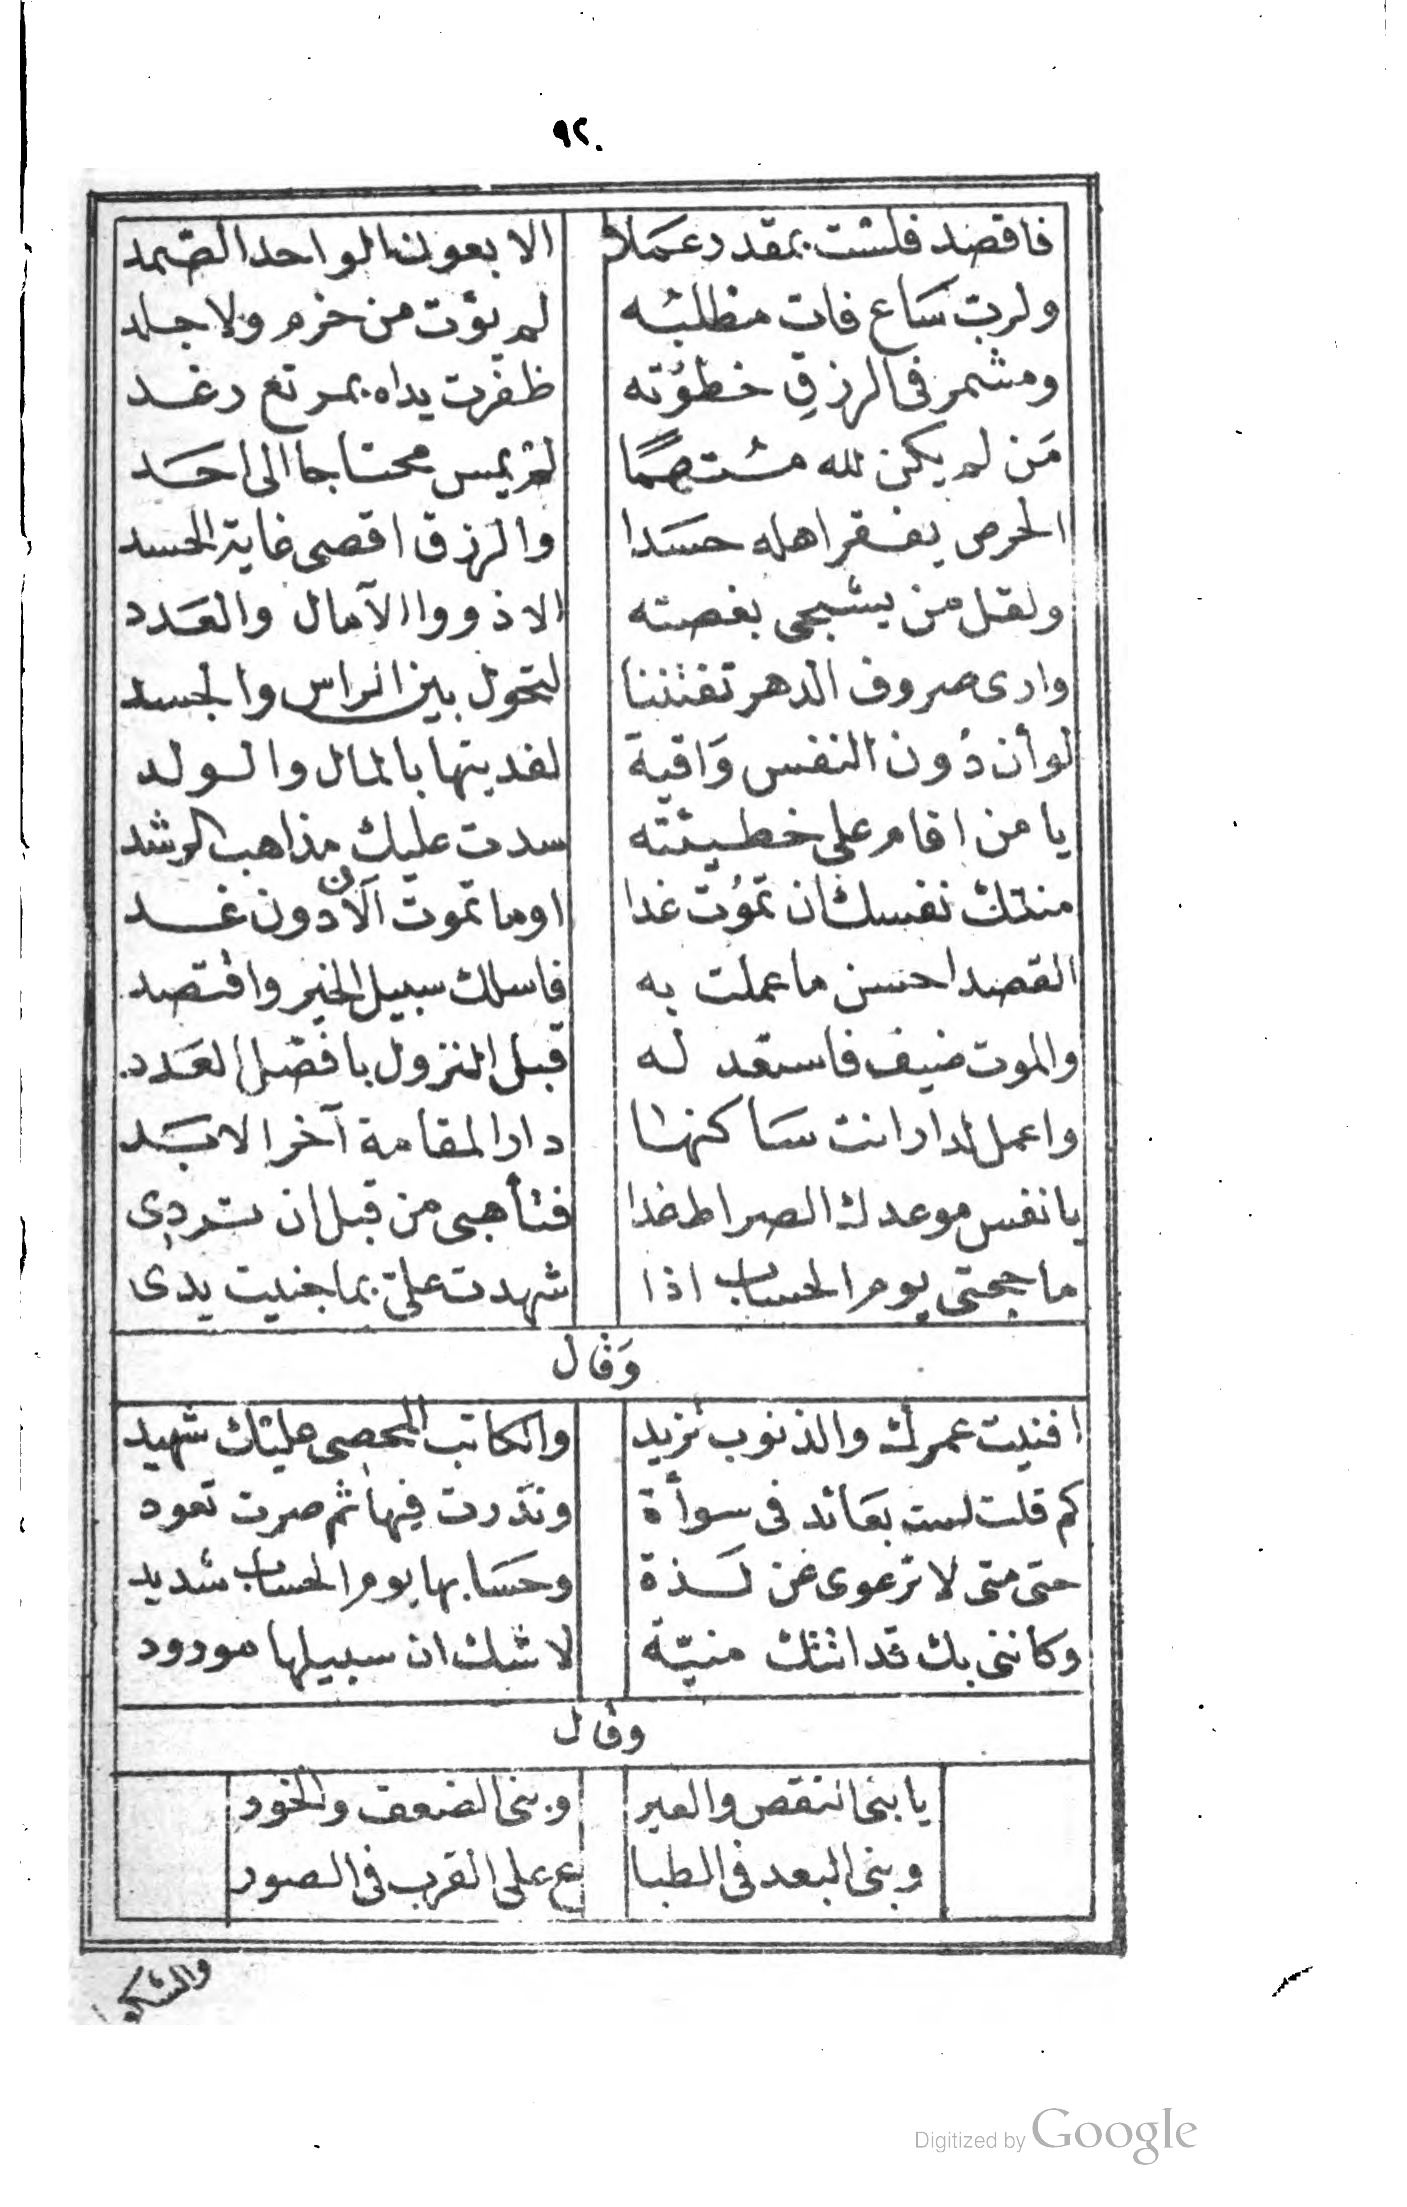 ٩٢
فاقصد فلست بمقدر عملا الا بعون الواحد الصّمد
ولرب سَاع فات مطلبه لم يؤت من حزم ولا جلد
ومشمر في الرزق خطوته ظفرت يداه بمرتع رغد
مَن لم يكن لله متهمًا لم يمس محتاجا الى احَد
الحرص يفقر اهله حسَدا والرزق اقصى غاية الحسد
ولقل من يشجى بغصته الا ذووا الآمال والعَدد
وارى صروف الدهر تفتننا لتحول بين الراس والجسد
لو أن دُون النفس وَاقية لفديتها بالمال والولد
يا من اقام على خطيئته سدت عليك مذاهب الرشد
منتك نفسك ان تموُت غدا اوما تموت الآن دون غد
القصد احسن ما عملت به فاسلك سبيل الخير واقتصد
والموت ضيف فاستعد له قبل النزول بافضل العَدد
واعمل لدار انت سَاكنها دار المقامة آخر الابَد
يا نفس موعدك الصراط غدا فتأهبى من قبل ان تردى
ما حجتى يوم الحساب اذا شهدت علىّ بما جنيت يدى
وَقال
افنيت عمرك والذنوب تزيد والكاتب المحصى عليك شهيد
كم قلت لست بعَائد فى سوأة ونذرت فيها ثم صرت تعود
حتى متى لا ترعوى عن لَذة وحسَابها يوم الحساب شديد
وكاننى بك قد اتتك منيّة لا شك ان سبيلها مورود
وقال
يا بنى النقص والعبر وبنى الضعف والخور
وبنى البعد فى الطبا ع على القرب فى الصور
Digitized by Google